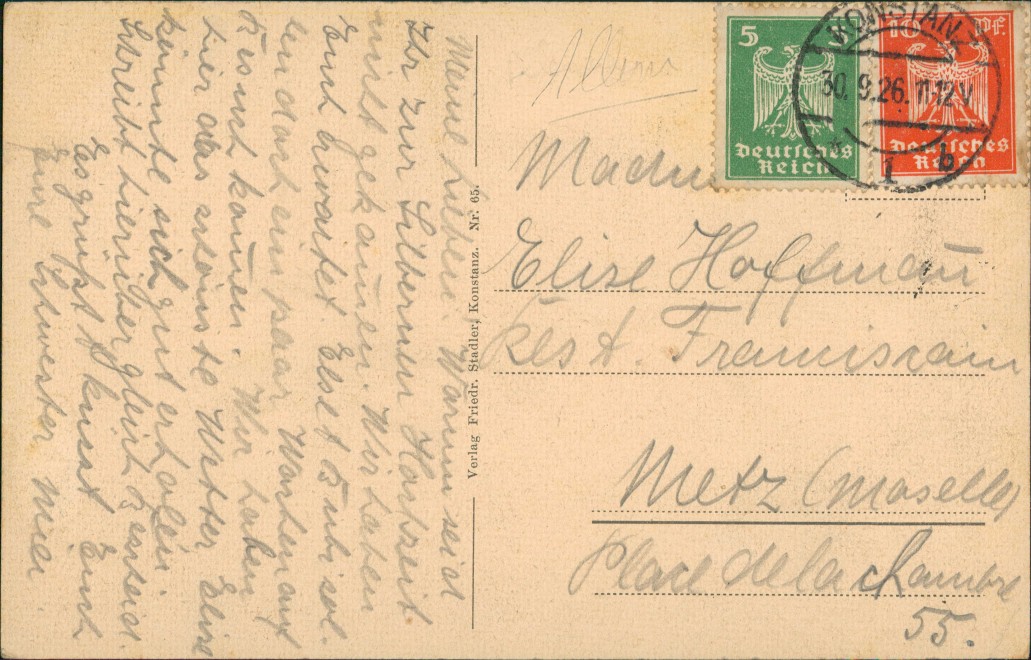 Meine Lieben! Warum seid
Ihr zur Silbernen Hochzeit
nicht gekommen. Wir haben
Euch erwartet. Else &
sol-
len doch ein paar Wochen auf
Besuch kommen. Wir haben
hier das schönste Wetter Elise
könnte sich gut erholen
Schreibt hierüber gleich &
Es grüßt & küsst Euch
Eure Schwester
Verlag Friedr. Stadler, Konstanz. Nr. 65.
5
Deutsches
Reich
10 PF.
Deutsches
Reich
KONSTANZ
30. 9. 26. 11-12 V
1 b
Elise Hoffmann
Rest Franciscain
Metz (Moselle)
Place de la Chambre
55.